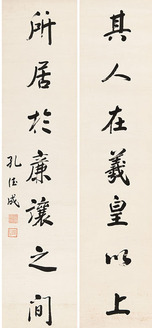 其人在羲皇以上
所居於廉讓之間
孔德成